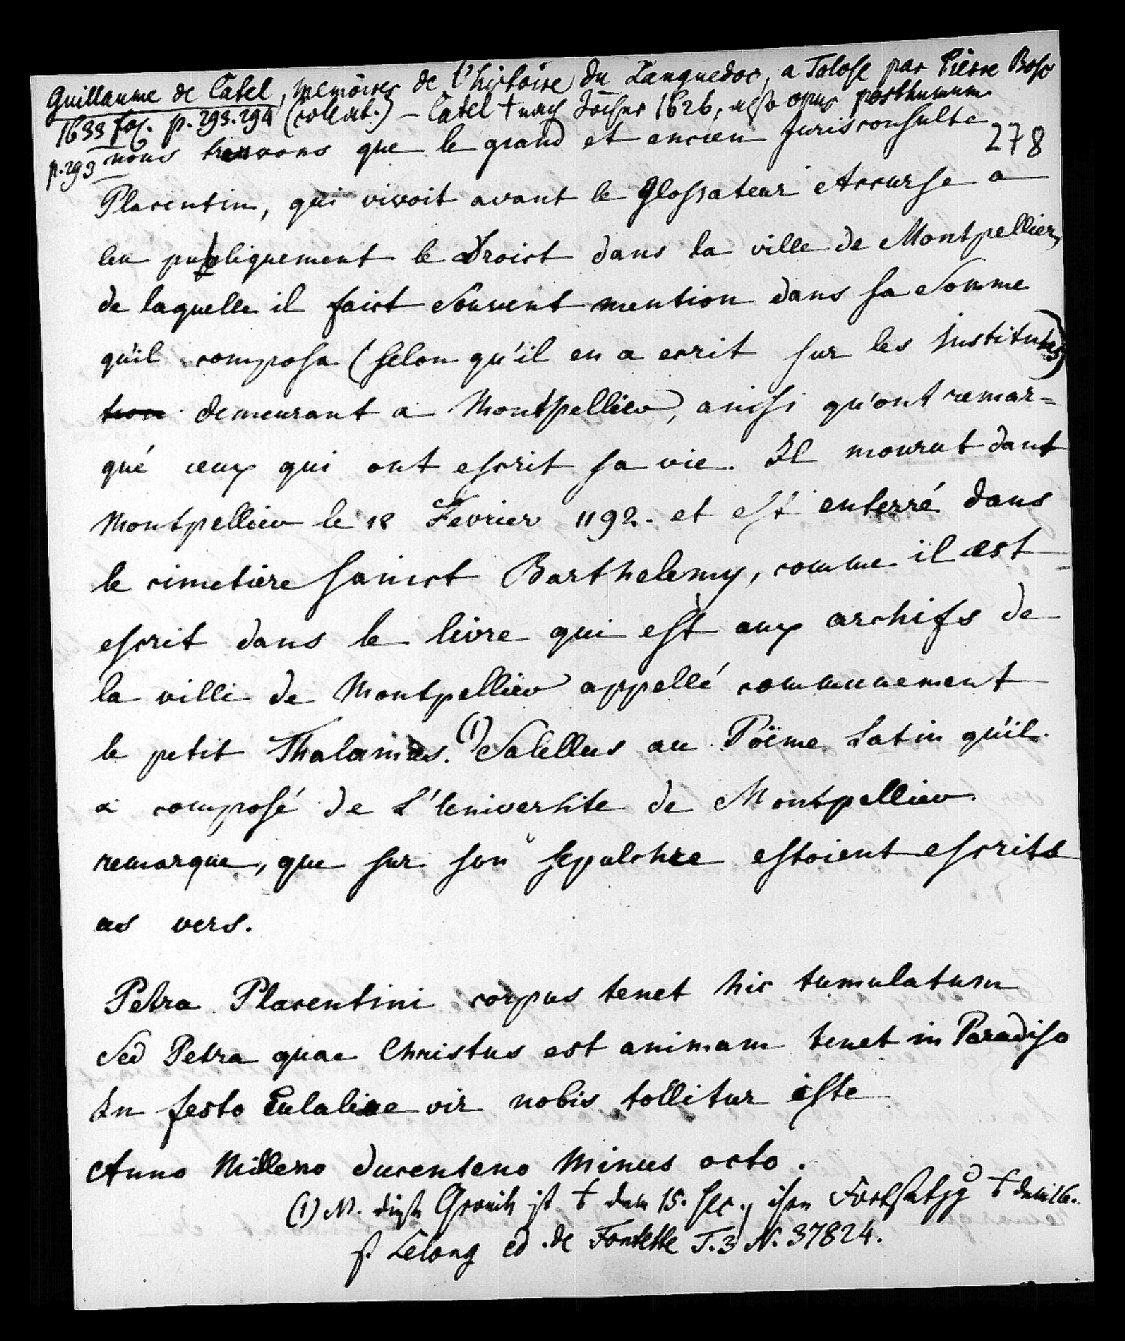 Guillaume de Catel, memoires de l'histoire du Languedoc, a Tolose par Pierre Bosc
1633 fol. p. 293. 294 (collat.) – Catel † nach Jöcher 1626, also opus posthumum.
278
p. 293 nous trouvons que le grand et ancien Jurisconsulte
Placentin, qui vivoit avant le Glossateur Accurse a
leu publiquement le Droict dans la ville de Montpellier,
de laquelle il faict souvent mention dans sa Somme
qu'il composa (selon qu'il en a ecrit sur les Institutes)
tion demeurant a Montpellier, ainsi qu'ont remar=
qué ceux qui ont escrit sa vie. Il mourut dant
Montpellier le 12 Fevrier 1192. et est enterré dans
le cimetiere sainct Barthelemy, comme il est
escrit dans le livre qui est aux archifs de
la ville de Montpellier appellé communement
le petit Thalamus. (1) Salellus au Poëme Latin qu'il
a composé de L'Universite de Montpellier
remarque, que sur son sepulchre estoient escrits
ces vers.
Petra Placentini corpus tenet hic tumulatum
Sed Petra quae Christus est animam tenet in Paradiso
In festo Eulaliae vir nobis tollitur iste
Anno Milleno ducenteno minus octo.
(1) N. diese Chronik ist † dem 15. sec., ihre Fortsetzg
s. Lelong ed. de Fontette T. 3 N. 37824.